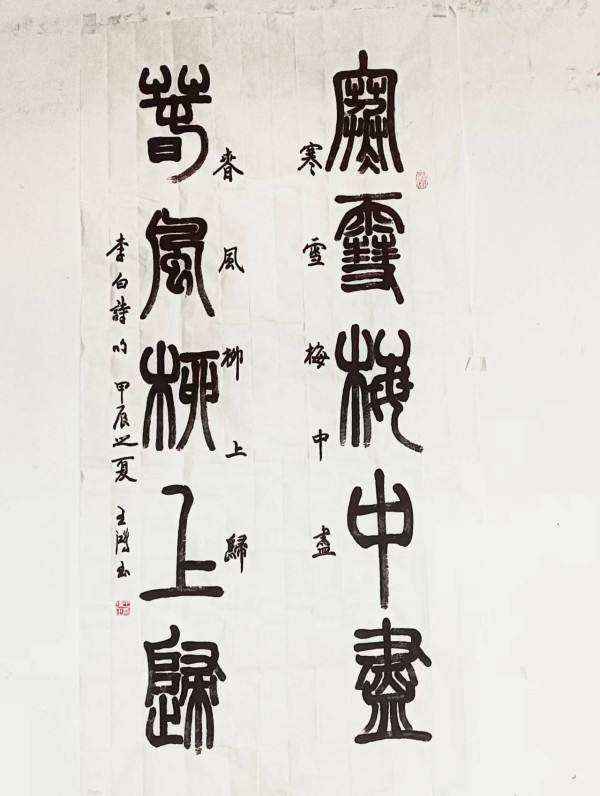 寒雪梅中盡
寒雪梅中盡
春風柳上歸
春風柳上歸
李白詩句 甲辰之夏 王鴻玉